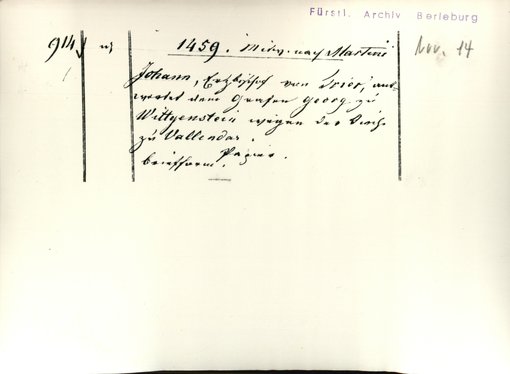 Fürstl. Archiv Berleburg
914
1459. Mittw. nach Martini
Nov. 14
Johann, Erzbischof von Trier, ant-
wortet dem Grafen Georg zu
Wittgenstein wegen der
zu Vallendar.
Briefform. Papier.